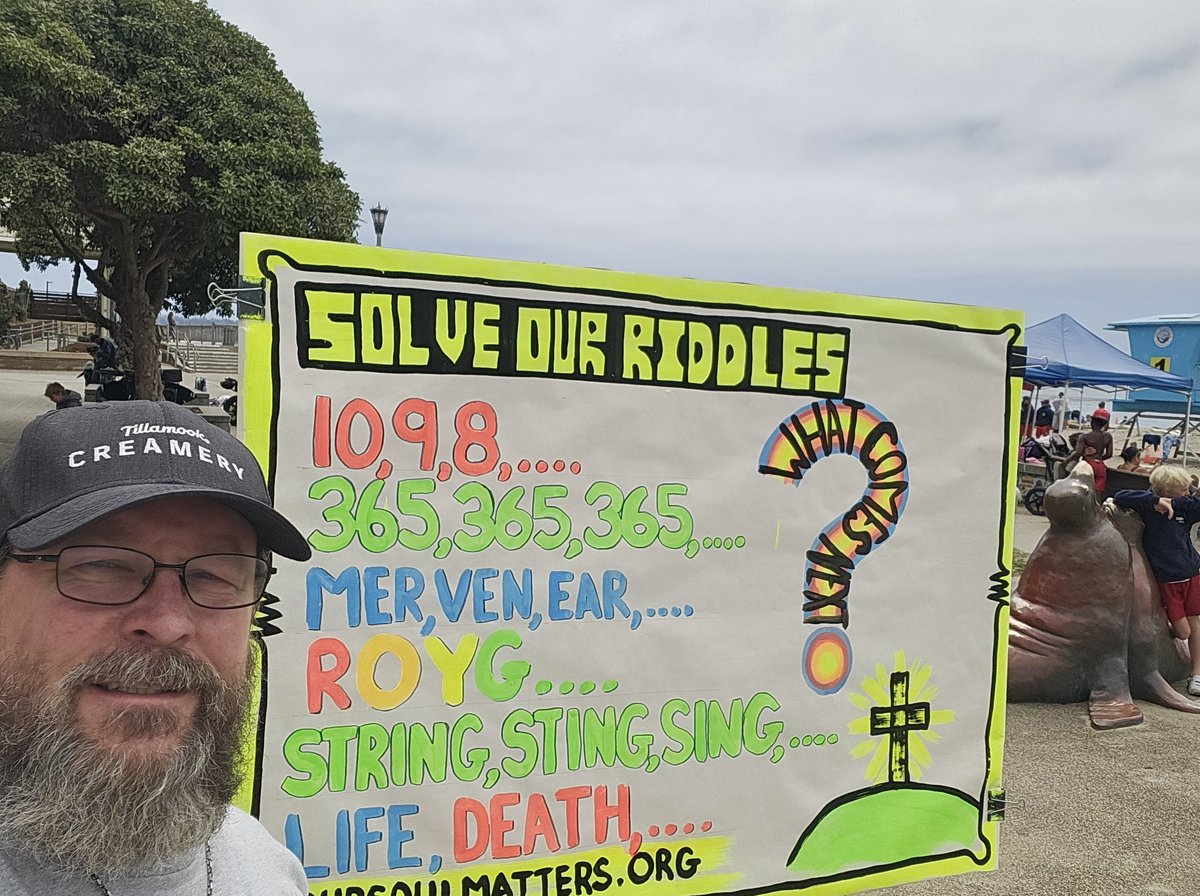 SOLVE OUR RIDDLES
10,9,8,....
365,365,365,....
MER,VEN,EAR,....
ROYG....
STRING,STING,SING,....
LIFE, DEATH,....
WHAT COMES NEXT
Tillamook
CREAMERY
1